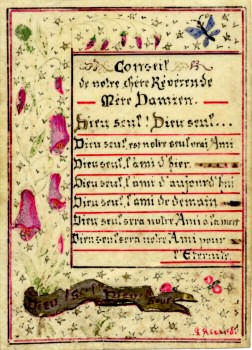 Conseil
de notre chère Révérende
Mère Damien.
Dieu seul! Dieu seul...
Dieu seul, est notre seul vrai Ami
Dieu seul, l'ami d'hier.
Dieu seul, l'ami d'aujourd'hui
Dieu seul, l'ami de demain.
Dieu seul sera notre Ami à la mort
Dieu seul sera notre Ami pour
l'Eternité.
Dieu seul Dieu seul